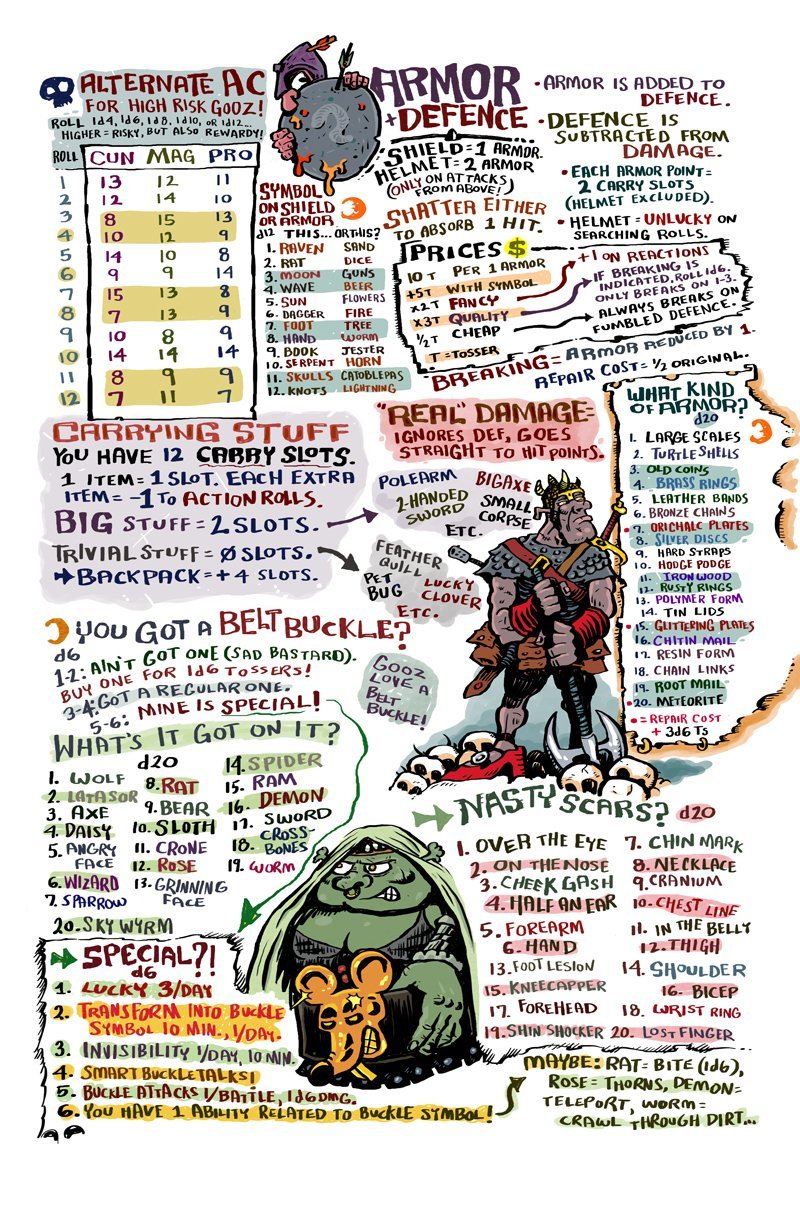 ALTERNATE AC
FOR HIGH RISK GOOZ!
ROLL 1d4, 1d6, 1d8, 1d10, OR 1d12...
HIGHER = RISKY, BUT ALSO REWARDY!
ROLL CUN MAG PRO
1 13 12 11
2 12 14 10
3 8 15 13
4 10 12 9
5 14 10 8
6 9 9 14
7 15 13 8
8 7 13 9
9 10 8 9
10 14 14 14
11 8 9 9
12 7 11 7
SYMBOL
ON SHIELD
OR ARMOR
d12 THIS... OR THIS?
1. RAVEN SAND
2. RAT DICE
3. MOON GUNS
4. WAVE BEER
5. SUN FLOWERS
6. DAGGER FIRE
7. FOOT TREE
8. HAND WORM
9. BOOK JESTER
10. SERPENT HORN
11. SKULLS CATOBLEPAS
12. KNOTS LIGHTNING
ARMOR
+ DEFENCE
SHIELD = 1 ARMOR.
HELMET = 2 ARMOR
(ONLY ON ATTACKS
FROM ABOVE!)
SHATTER EITHER
TO ABSORB 1 HIT.
• ARMOR IS ADDED TO
DEFENCE.
• DEFENCE IS
SUBTRACTED FROM
DAMAGE.
• EACH ARMOR POINT =
2 CARRY SLOTS
(HELMET EXCLUDED).
• HELMET = UNLUCKY ON
SEARCHING ROLLS.
PRICES $
10 T PER 1 ARMOR
+5T WITH SYMBOL
x2T FANCY
x3T QUALITY
1/2T CHEAP
T = TOSSER
+1 ON REACTIONS
IF BREAKING IS
INDICATED, ROLL 1d6.
ONLY BREAKS ON 1-3.
ALWAYS BREAKS ON
FUMBLED DEFENCE.
BREAKING = ARMOR REDUCED BY 1.
REPAIR COST = 1/2 ORIGINAL.
CARRYING STUFF
YOU HAVE 12 CARRY SLOTS.
1 ITEM = 1 SLOT. EACH EXTRA
ITEM = -1 TO ACTION ROLLS.
BIG STUFF = 2 SLOTS.
TRIVIAL STUFF = 0 SLOTS.
BACKPACK = + 4 SLOTS.
"REAL" DAMAGE =
IGNORES DEF, GOES
STRAIGHT TO HIT POINTS.
POLEARM
BIG AXE
2-HANDED
SWORD
SMALL
CORPSE
ETC.
FEATHER
QUILL
PET
BUG
LUCKY
CLOVER
ETC.
WHAT KIND
OF ARMOR?
d20
1. LARGE SCALES
2. TURTLE SHELLS
3. OLD COINS
4. BRASS RINGS
5. LEATHER BANDS
6. BRONZE CHAINS
• 7. ORICHALC PLATES
• 8. SILVER DISCS
9. HARD STRAPS
10. HODGE PODGE
11. IRONWOOD
12. RUSTY RINGS
13. POLYMER FORM
14. TIN LIDS
• 15. GLITTERING PLATES
16. CHITIN MAIL
17. RESIN FORM
18. CHAIN LINKS
19. ROOT MAIL
• 20. METEORITE
• = REPAIR COST
+ 3d6 Ts
YOU GOT A BELT BUCKLE?
d6
1-2: AIN'T GOT ONE (SAD BASTARD).
BUY ONE FOR 1d6 TOSSERS!
3-4: GOT A REGULAR ONE.
5-6: MINE IS SPECIAL!
GOOZ
LOVE A
BELT
BUCKLE!
WHAT'S IT GOT ON IT?
d20
1. WOLF
2. LATASOR
3. AXE
4. DAISY
5. ANGRY
FACE
6. WIZARD
7. SPARROW
8. RAT
9. BEAR
10. SLOTH
11. CRONE
12. ROSE
13. GRINNING
FACE
14. SPIDER
15. RAM
16. DEMON
17. SWORD
18. CROSS-
BONES
19. WORM
20. SKY WYRM
SPECIAL?!
d6
1. LUCKY 3/DAY
2. TRANSFORM INTO BUCKLE
SYMBOL 10 MIN., 1/DAY.
3. INVISIBILITY 1/DAY, 10 MIN.
4. SMART BUCKLE TALKS!
5. BUCKLE ATTACKS 1/BATTLE, 1d6 DMG.
6. YOU HAVE 1 ABILITY RELATED TO BUCKLE SYMBOL!
NASTY SCARS? d20
1. OVER THE EYE
2. ON THE NOSE
3. CHEEK GASH
4. HALF AN EAR
5. FOREARM
6. HAND
7. CHIN MARK
8. NECKLACE
9. CRANIUM
10. CHEST LINE
11. IN THE BELLY
12. THIGH
13. FOOT LESION
14. SHOULDER
15. KNEECAPPER
16. BICEP
17. FOREHEAD
18. WRIST RING
19. SHIN SHOCKER
20. LOST FINGER
MAYBE: RAT = BITE (1d6),
ROSE = THORNS, DEMON =
TELEPORT, WORM =
CRAWL THROUGH DIRT...